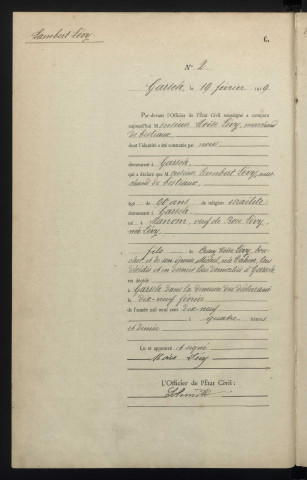 Lambert Lévy
C.
N° 2
Garsch, le 19 février 1919.
Par-devant l'Officier de l'État Civil soussigné a comparu
aujourd'hui M onsieur Moïse Lévy, marchand
de bestiaux
dont l'identité a été constatée par nous
demeurant à Garsch,
qui a déclaré que M onsieur Lambert Lévy, mar
chand de bestiaux,
âgé de ans de religion israélite
demeurant à Garsch
né à Manom, veuf de Lévy,
née Lévy,
fils de Lévy, bou-
cher, et de son épouse née Cahen, tous
décédés et en dernier lieu domiciliés à Garsch
est décédé
à Garsch dans la demeure du déclarant
le dix-neuf février
de l'année mil neuf cent dix-neuf
à quatre heures
et demie
Lu et approuvé et signé
Moïse Lévy
L'Officier de l'État Civil:
Schmitt